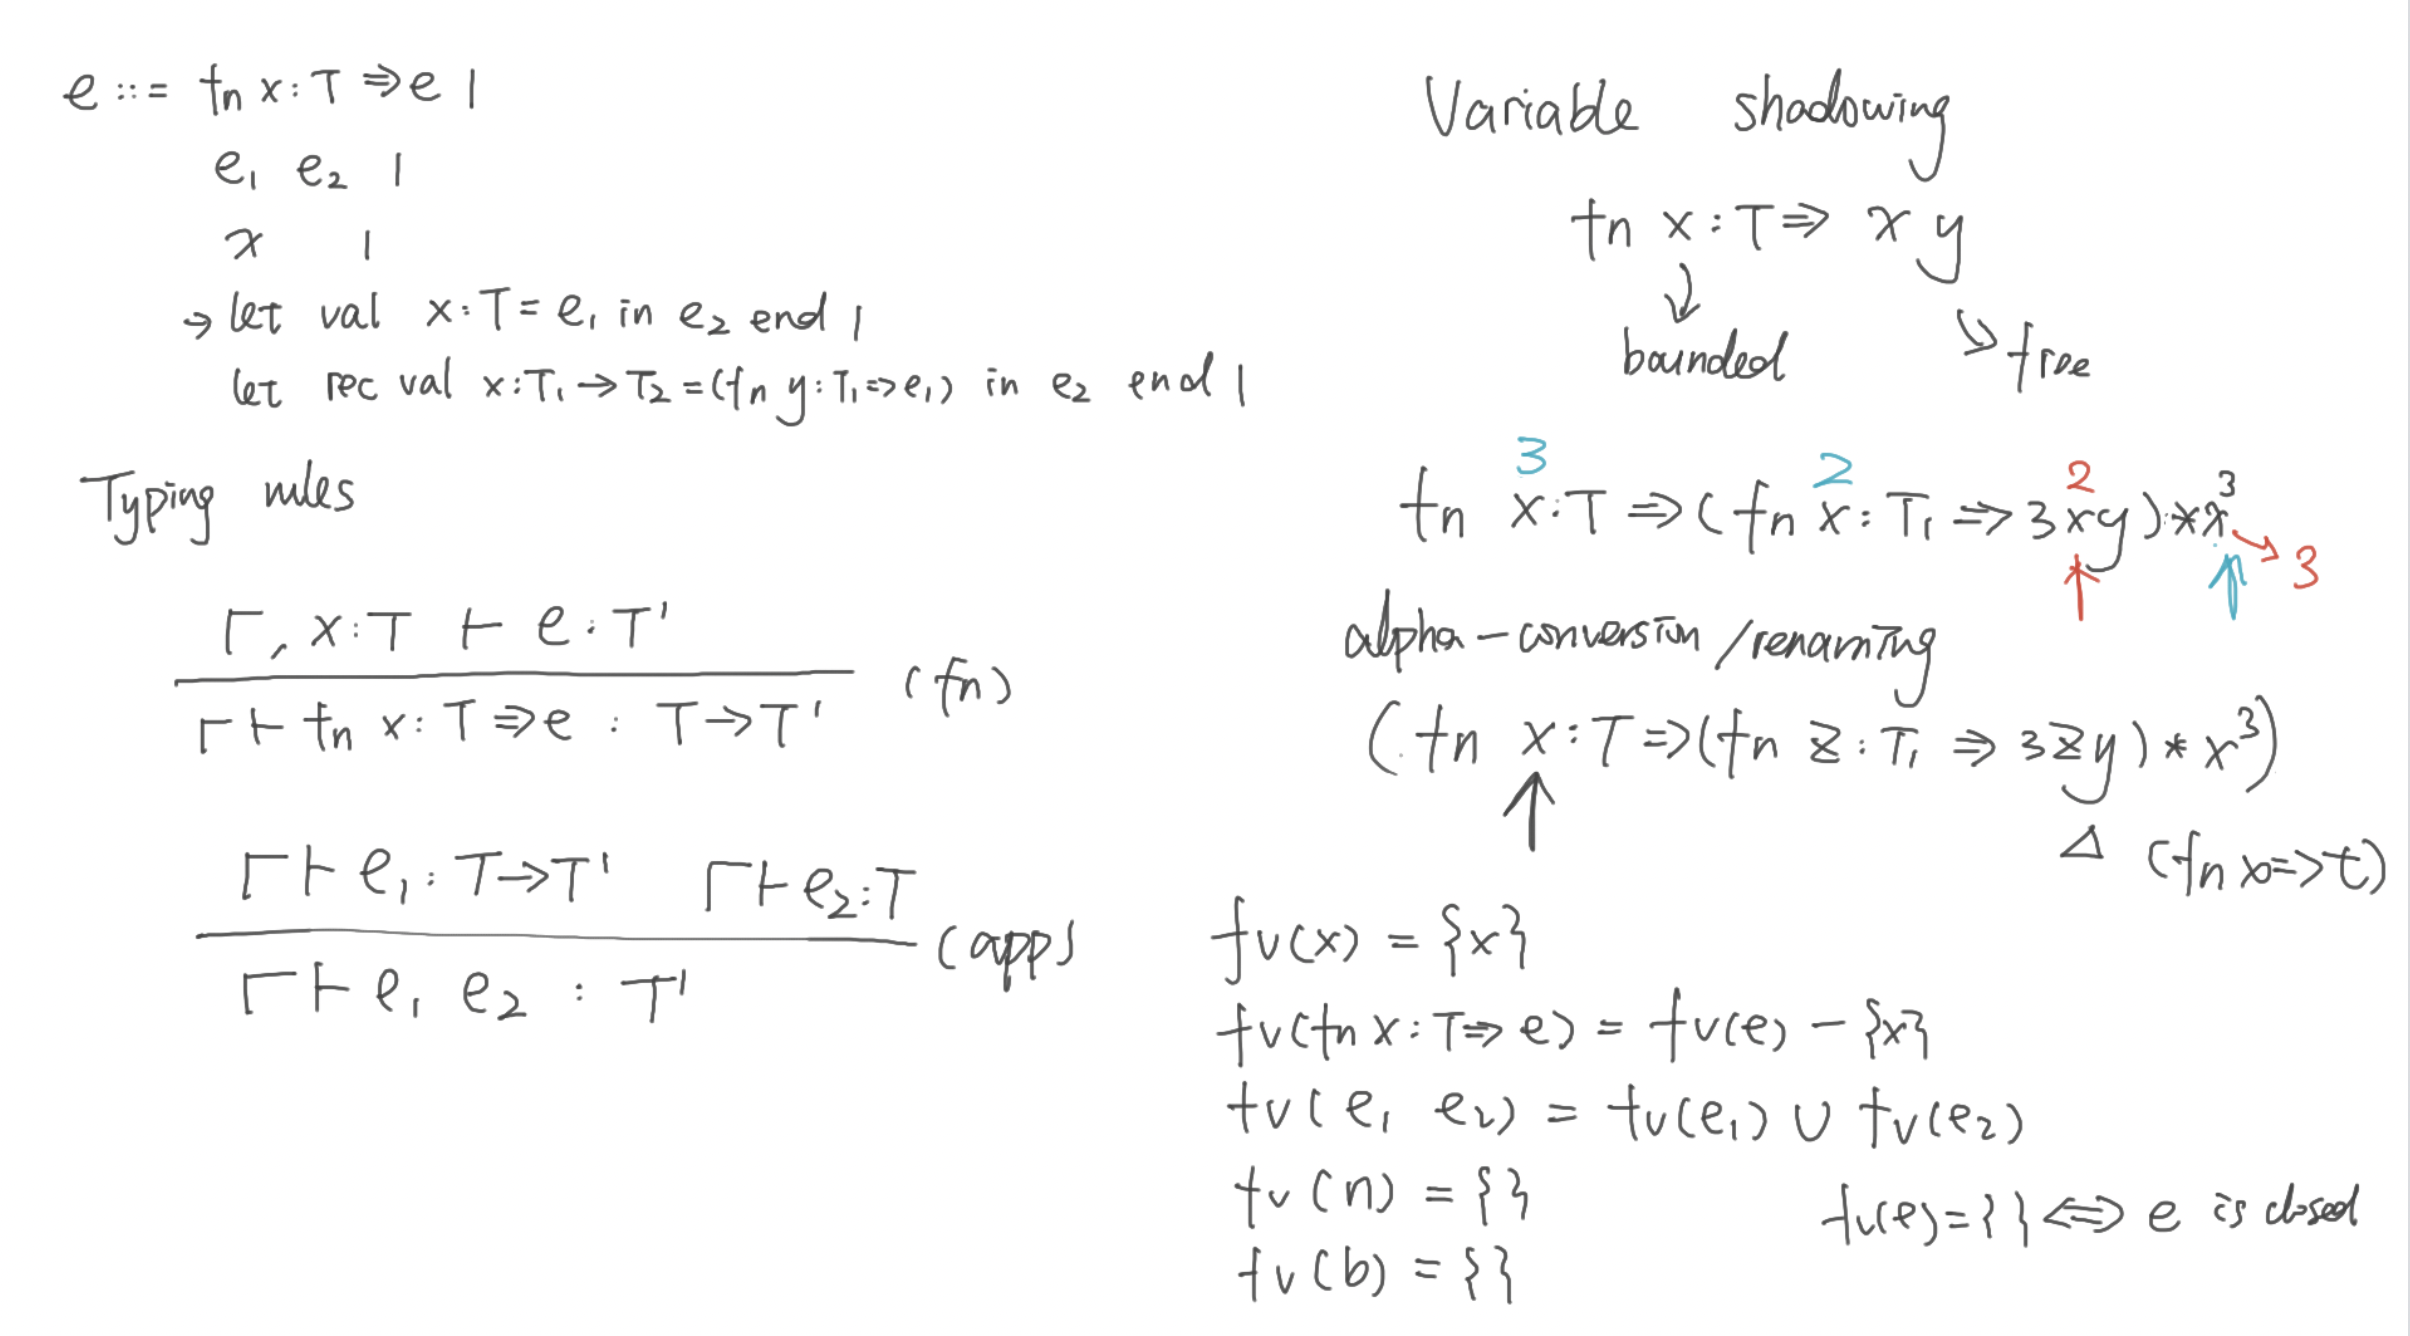 e ::= fn x:T ⇒ e |
e₁ e₂ |
x |
→ let val x:T = e₁ in e₂ end |
let rec val x:T₁ → T₂ = (fn y:T₁ => e₁) in e₂ end |
Typing rules
Γ, x:T ⊢ e:T'
(fn)
Γ ⊢ fn x:T ⇒ e : T → T'
Γ ⊢ e₁:T → T' Γ ⊢ e₂:T
(app)
Γ ⊢ e₁ e₂ : T'
Variable shadowing
fn x:T ⇒ x y
bounded
free
3 2 2
fn x:T ⇒ (fn x:T₁ ⇒ 3xy) * x³
3
alpha-conversion/renaming
(fn x:T ⇒ (fn z:T₁ ⇒ 3zy) * x³)
△ (fn x => t)
fv(x) = {x}
fv(fn x:T ⇒ e) = fv(e) - {x}
fv(e₁ e₂) = fv(e₁) ∪ fv(e₂)
fv(n) = {}
fv(e) = {} ⇔ e is closed
fv(b) = {}